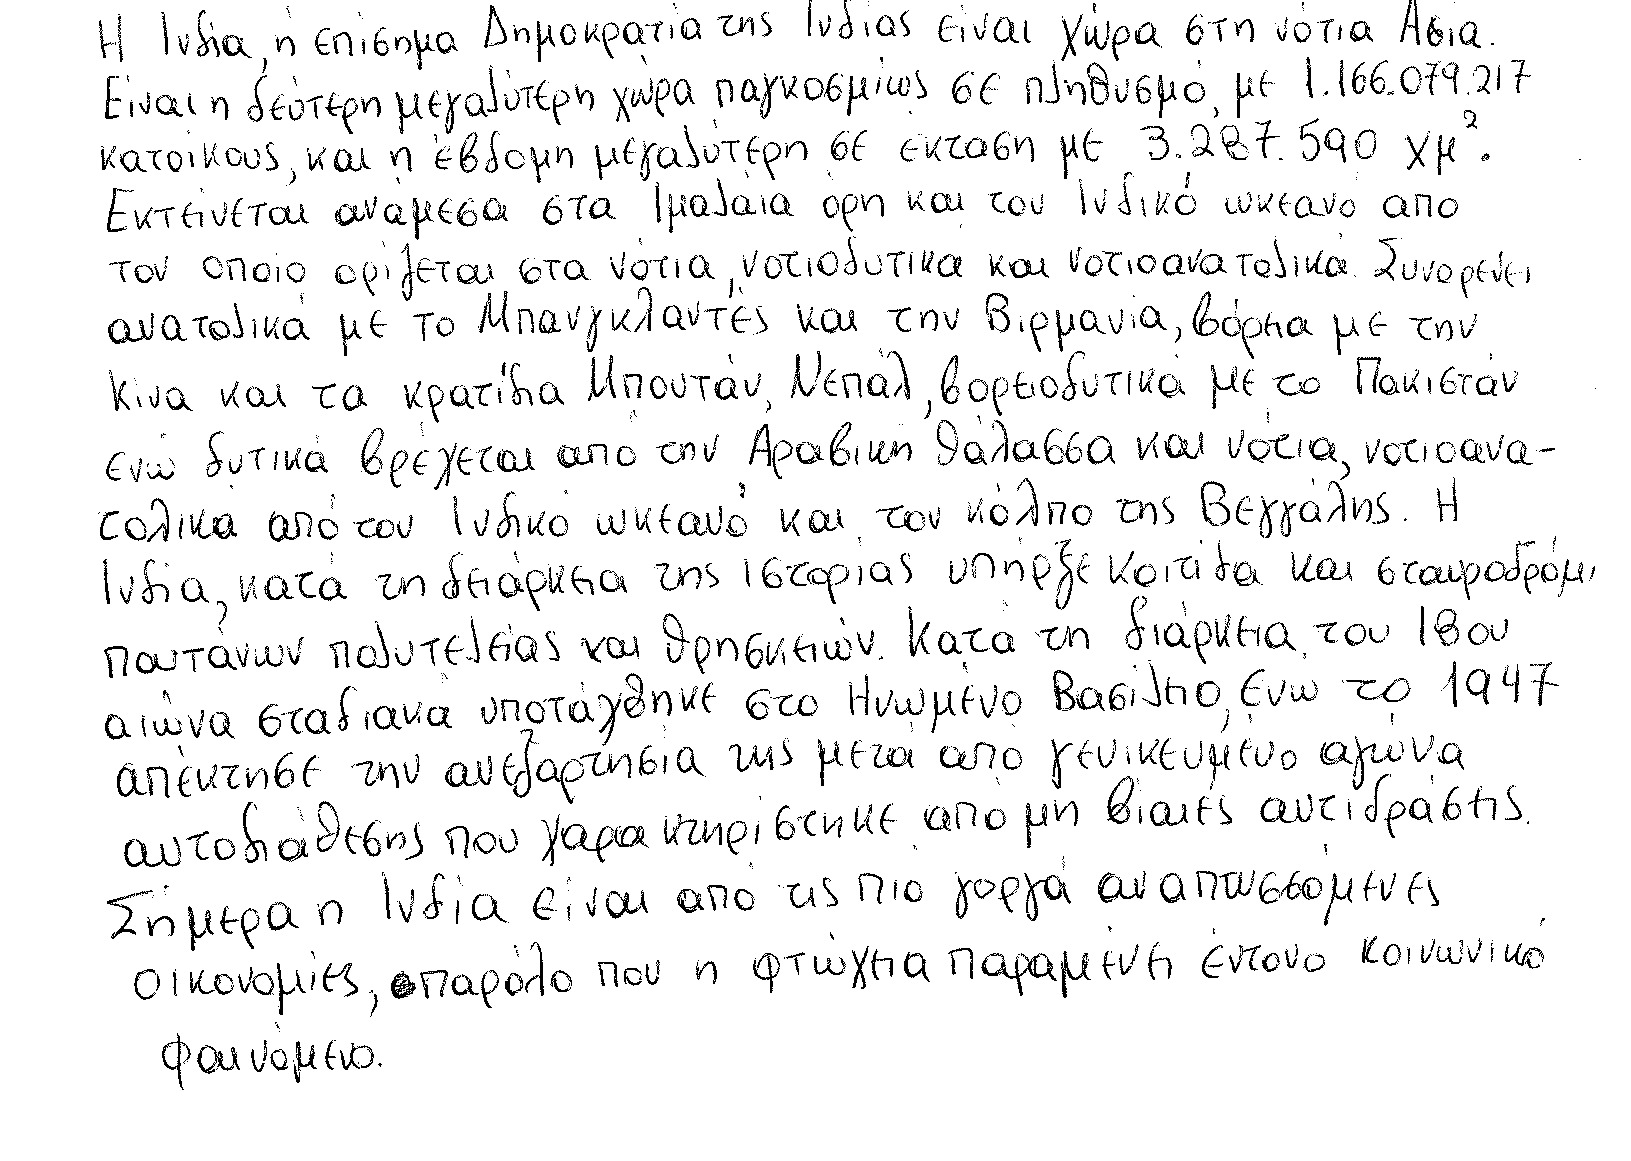 Η Ινδία, ή επίσημα Δημοκρατία της Ινδίας είναι χώρα στη νότια Ασία.
Είναι η δεύτερη μεγαλύτερη χώρα παγκοσμίως σε πληθυσμό, με 1.166.079.217
κατοίκους, και η έβδομη μεγαλύτερη σε έκταση με 3.287.590 χμ².
Εκτείνεται ανάμεσα στα Ιμαλάια όρη και τον Ινδικό ωκεανό από
τον οποίο ορίζεται στα νότια, νοτιοδυτικά και νοτιοανατολικά. Συνορεύει
ανατολικά με το Μπανγκλαντές και την Βιρμανία, βόρεια με την
Κίνα και τα κρατίδια Μπουτάν, Νεπάλ, βορειοδυτικά με το Πακιστάν
ενώ δυτικά βρέχεται από την Αραβική θάλασσα και νότια, νοτιοανα-
τολικά από τον Ινδικό ωκεανό και τον κόλπο της Βεγγάλης. Η
Ινδία, κατά τη δειάρκεια της ιστορίας υπήρξε κοιτίδα και σταυροδρόμι
παντάνων πολυτελείας και θρησκειών. Κατά τη διάρκεια του 18ου
αιώνα σταδιακά υποτάχθηκε στο Ηνωμένο Βασίλειο, ενώ το 1947
απέκτησε την ανεξαρτησία της μετά από γενικευμένο αγώνα
αυτοδιάθεσης που χαρακτηρίστηκε από μη βίαιες αντιδράσεις.
Σήμερα η Ινδία είναι από τις πιο γοργά αναπτυσσόμενες
οικονομίες, παρόλο που η φτώχεια παραμένει έντονο κοινωνικό
φαινόμενο.